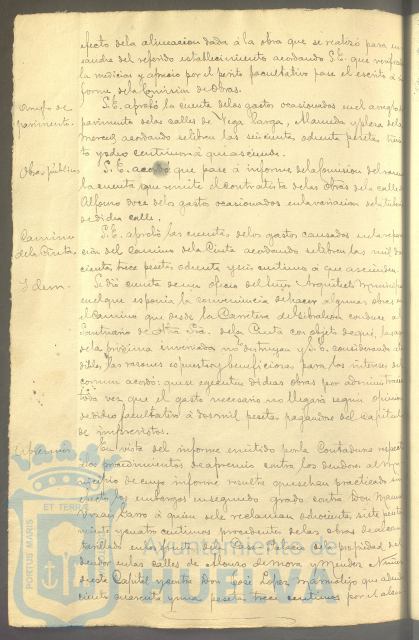 efecto de la alineacion dada á la obra que se realizó para
del referido establecimiento acordando S.E. que verificada
la medicion y aprecio por el perito facultativo pase el escrito á in-
forme de la Comision de Obras.
Arreglo de pavimento.
S.E. aprobó la cuenta de los gastos ocasionados en el arreglo de
pavimento de las calles de Vega Larga, y plaza de la
Merced acordando se libren las seiscientas ochenta pesetas
y ocho centimos á que asciende.
Obras públicas
S.E. acordó que pase á informe de la Comision del ramo
la cuenta que remite el contratista de las obras de la calle
Alfonso doce de los gastos ocasionados en la variacion de la tuberia
de dicha calle.
Camino de la Cinta.
S.E. aprobó las cuentas de los gastos causados en la repara-
ción del Camino de la Cinta acordando se libren las mil dos-
cientas trece pesetas ochenta y seis centimos á que ascienden.
Idem.
Se dió cuenta de un oficio del Señor Arquitecto Municipal
en el que exponia la conveniencia de hacer algunas obras en
el Camino que desde la Carretera de Gibraleon conduce al
Santuario de Ntra. Sra. de la Cinta con objeto de que las aguas
de la próxima invernada no destruyan y S.E. considerando aten-
dibles las razones expuestas y beneficiosas para los intereses del
comun acordó que se ejecuten dichas obras por administracion
toda vez que el gasto necesario no llegaria segun opinion
de dicho facultativo á dos mil pesetas pagandose del Capitulo
de imprevistos.
En vista del informe emitido por la Contaduria respecto
á los procedimientos de apremio contra los deudores al Mu-
nicipio de cuyo informe resulta que se han practicado sin
efecto embargos en segundo grado contra Don Manuel
á quien se le reclaman ochocientas siete pesetas
veinte y cuatro centimos procedentes de las obras de alcan-
tarillado en las Casas de su propiedad del
deudor en las calles de Alonso de Mora y Mendez Nuñez
de esta Capital y contra Don José Lopez Marmolejo que adeuda
ciento cuarenta y una pesetas trece centimos por el alcan-
PORTUS MARIS ET TERRAE
Ayuntamiento de
HUELVA